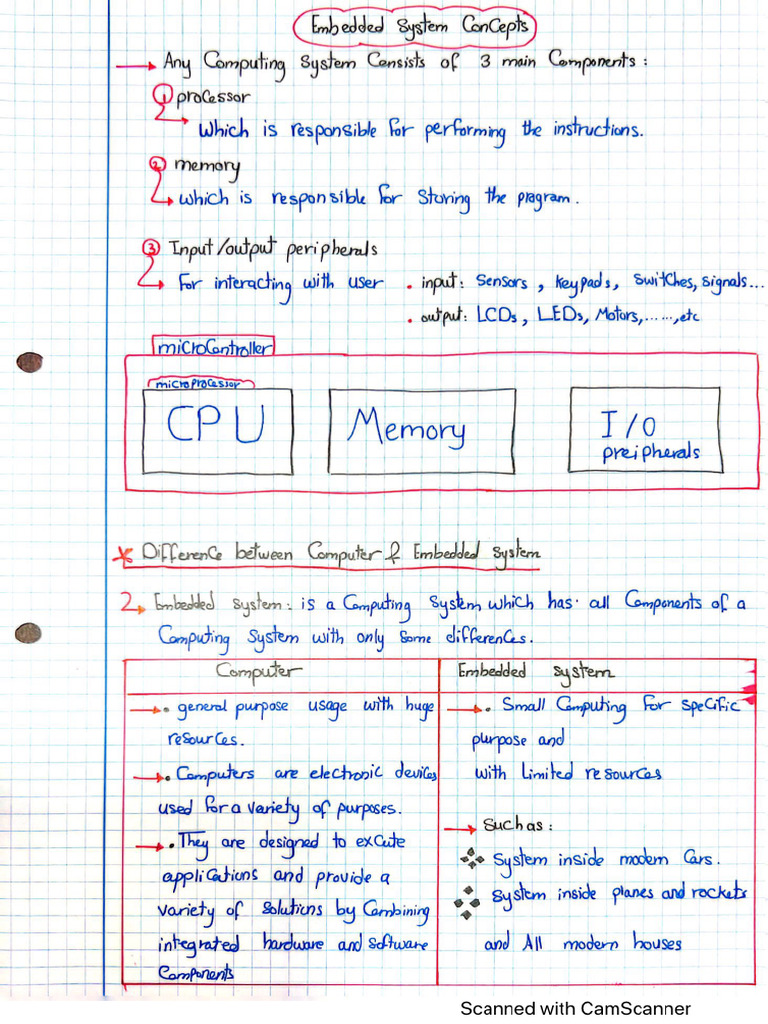 Embedded System Concepts
Any Computing System Consists of 3 main Components:
1 processor
which is responsible for performing the instructions.
2 memory
which is responsible for storing the program.
3 Input/output peripherals
For interacting with user . input: Sensors, keypads, switches, signals...
. output: LCDs, LEDs, Motors,......,etc
microController
microprocessor
CPU
Memory
I/O
preipherals
* Difference between Computer & Embedded system
2 Embedded system: is a Computing system which has all Components of a
Computing System with only some differences.
Computer
. general purpose usage with huge
resources.
. Computers are electronic devices
used for a variety of purposes.
. They are designed to excute
applications and provide a
variety of solutions by Combining
integrated hardware and software
Components
Embedded system
. Small Computing for specific
purpose and
with limited resources
Such as:
❖ System inside modern Cars.
❖ System inside planes and rockets
❖
and All modern houses
Scanned with CamScanner